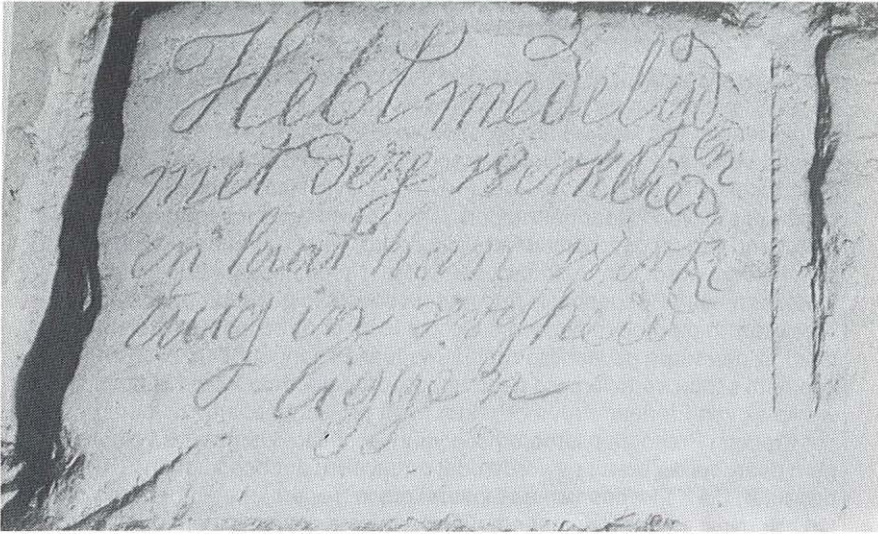 Hebt medelijd
en
met deze werklied
en laat hun werk
tuig in vryheid
liggen